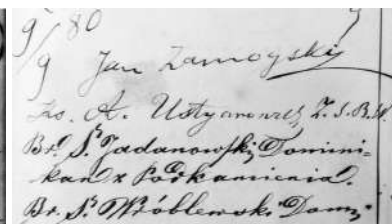 9/9 80
Jan Zamoyski
Ks. A. Ustyanowicz Z. S. B. W.
Br. S. Jadanowski, Domini-
kan z Podkamienia.
Br. S. Wróblewski Domi-